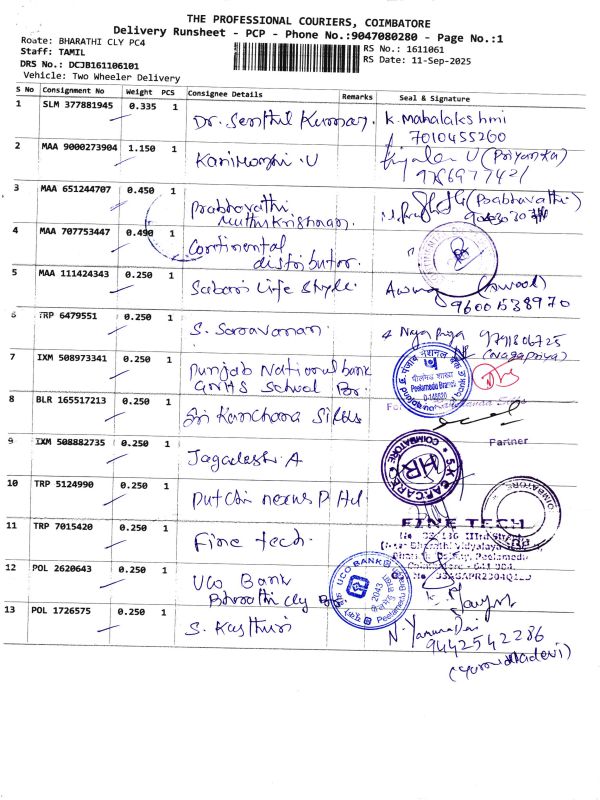 THE PROFESSIONAL COURIERS, COIMBATORE
Delivery Runsheet - PCP - Phone No.:9047080280 - Page No.:1
Roate: BHARATHI CLY PC4
RS No.: 1611061
Staff: TAMIL
RS Date: 11-Sep-2025
DRS No.: DCJB161106101
Vehicle: Two Wheeler Delivery
S No Consignment No Weight PCS Consignee Details Remarks Seal & Signature
1 SLM 377881945 0.335 1 Dr. Senthil Kumar, K. Mahalakshmi
7010455260
2 MAA 9000273904 1.150 1 Kanimozhi . U (Priyanka)
3 MAA 651244707 0.450 1 Prabhavathi (Prabhavathi)
Muthukrishnan.
4 MAA 707753447 0.490 1 Continental
distributor.
5 MAA 111424343 0.250 1 Sabari Life Style.
96001538970
6 TRP 6479551 0.250 1 S. Saravanan. Nagapriya 9791806725
(Nagapriya)
7 IXM 508973341 0.250 1 Punjab National bank
GNHS School Br.
पंजाब नैशनल बैंक
पीलमेडु शाखा
Peelamedu Branch
punjab national bank
8 BLR 165517213 0.250 1 Sri Kanchana Silks
For
Partner
9 IXM 508882735 0.250 1 Jagadesh A
COIMBATORE
HR
10 TRP 5124990 0.250 1 Dutch nexus P Ltd.
COIMBATORE
11 TRP 7015420 0.250 1 Fine tech.
FINE TECH
12 POL 2620643 0.250 1 UCO Bank
Bharathi cly Br
UCO BANK
2043
Peelamedu
13 POL 1726575 0.250 1 S. Kasthuri
N. Yamuna Devi
9442542286
(Yamunadevi)